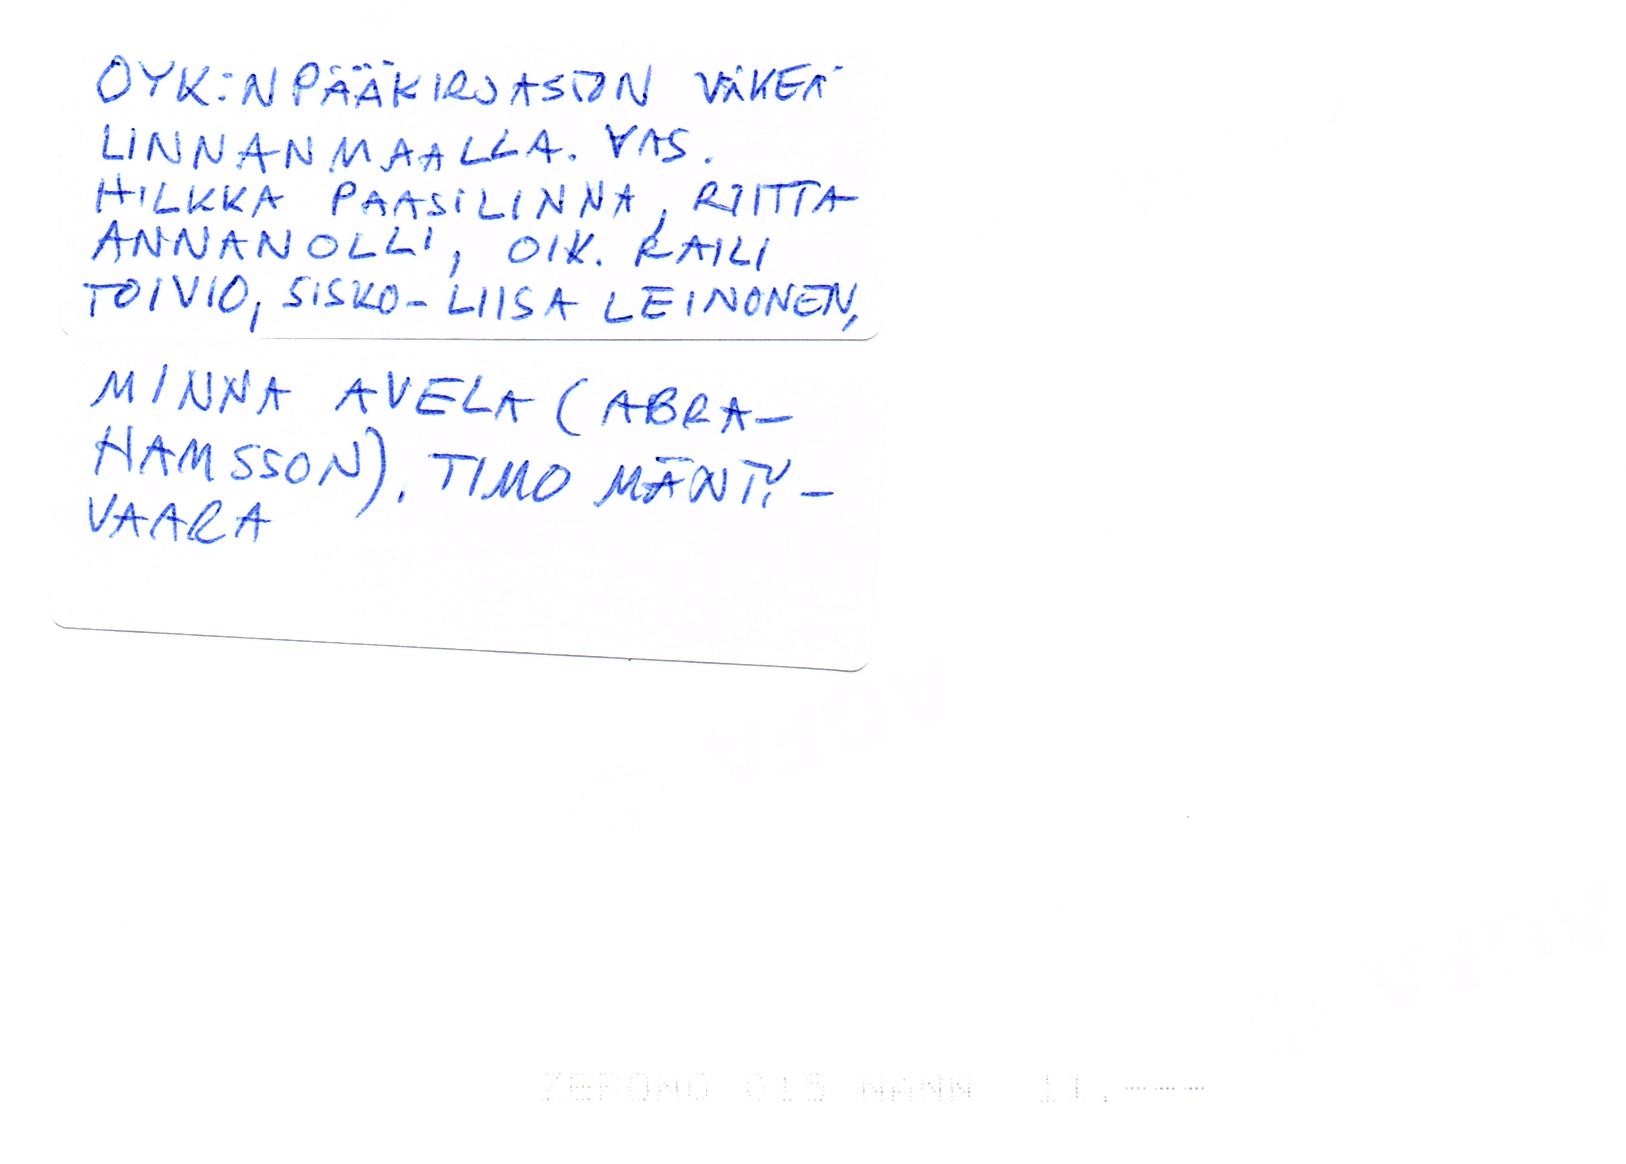 OYK:N PÄÄKIRJASTON VÄKEÄ
LINNANMAALLA. VAS.
HILKKA PAASILINNA, RIITTA
ANNANOLLI, OIK. RAILI
TOIVIO, SISKO-LIISA LEINONEN,
MINNA AVELA (ABRA-
HAMSSON). TIMO MÄNTY-
VAARA
11.----